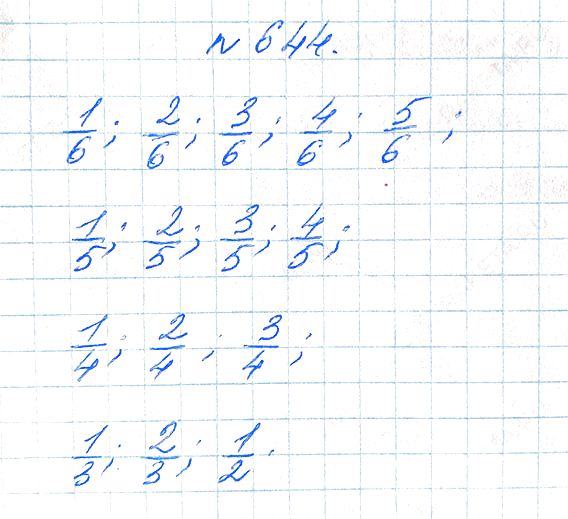 N 644.
1/6; 2/6; 3/6; 4/6; 5/6;
1/5; 2/5; 3/5; 4/5;
1/4; 2/4; 3/4;
1/3; 2/3; 1/2.